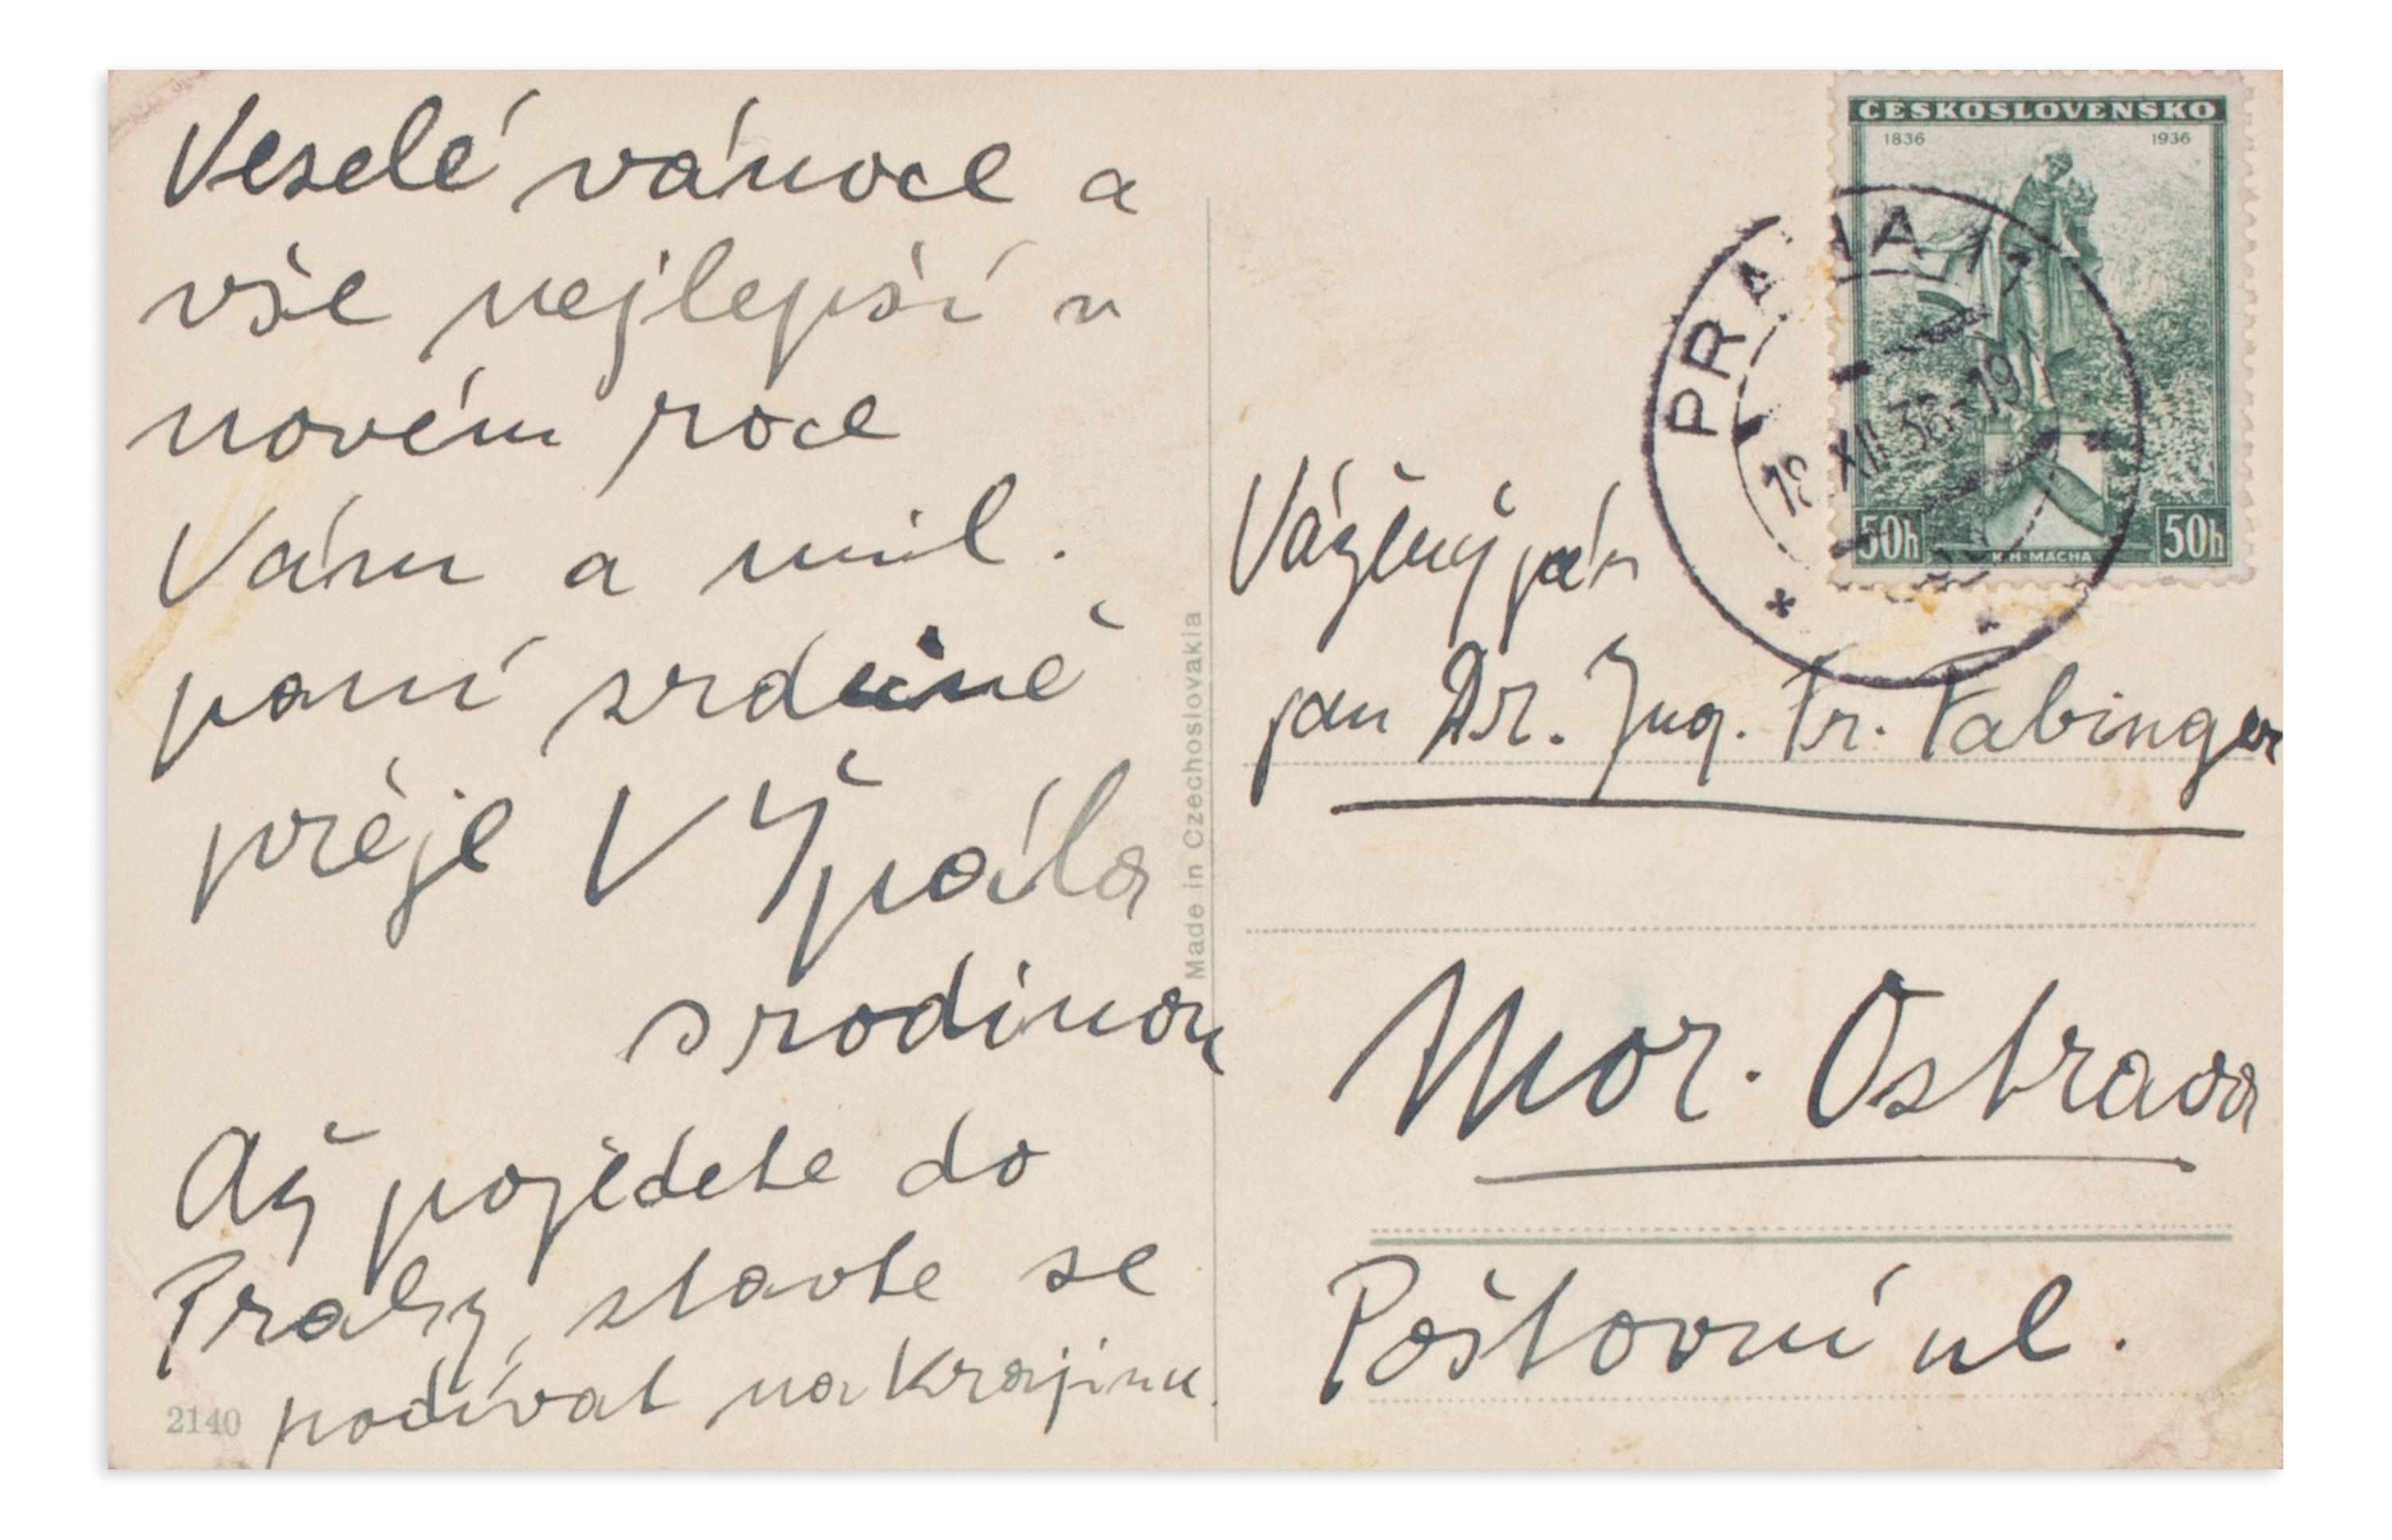 Veselé vánoce a
vše nejlepší v
novém roce
Vám a mil.
paní srdečně
přeje V Špála
s rodinou
Až pojedete do
Prahy, stavte se
podívat na Krajinu.
2140
Made in Czechoslovakia
ČESKOSLOVENSKO
1836 1936
50h K. H. MÁCHA 50h
PRAHA
XII 36-19
Vážený pán
pan Dr. Ing. Fr. Fabinger
Mor. Ostrava
Poštovní ul.